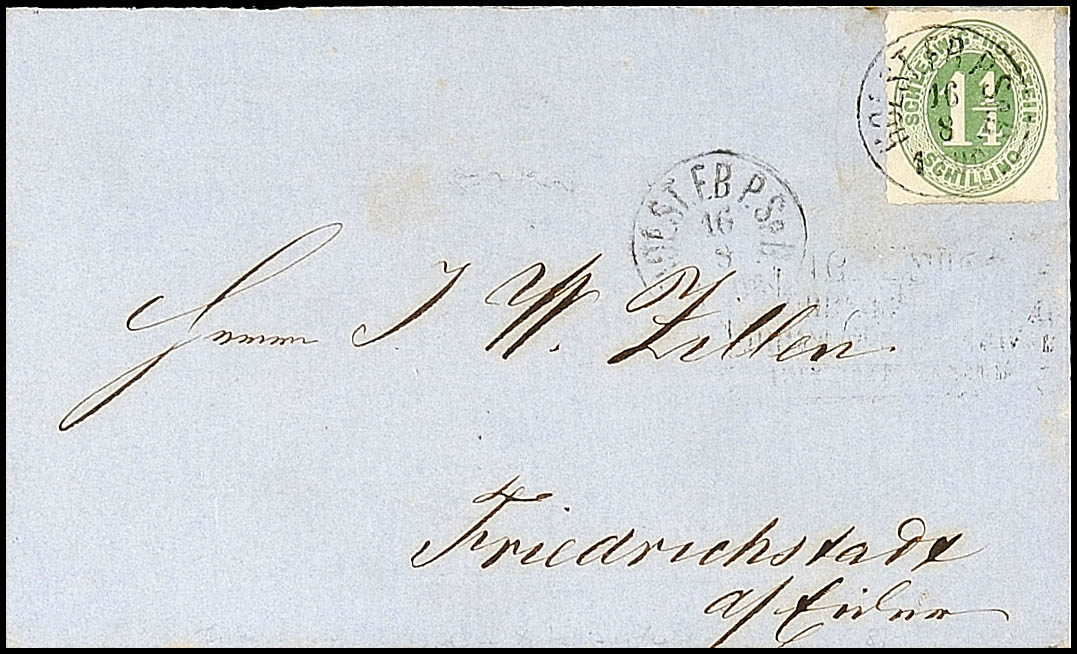 SCHLESWIG-HOLSTEIN
1¼
SCHILLING
HOLST.E.B.P.
16
8
HOLST E.B P.Sp.b
16
8
Herrn J. W. Zillen.
Friedrichstadt
a/ Eider